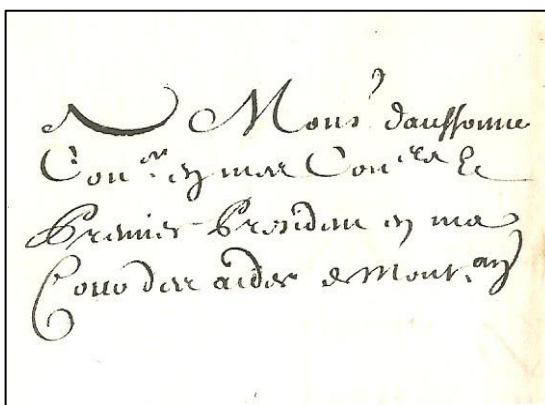 A Monsr daussonne
Coner en mes Conels &
Premier Presidant en ma
Cour des aides de Montan